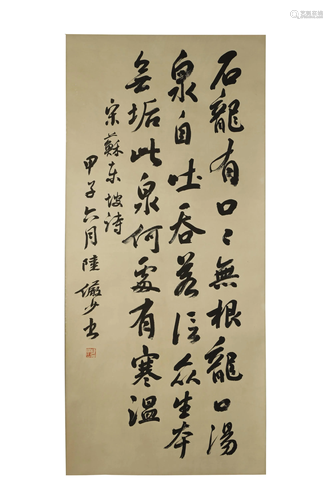 石龍有口〻無根龍口湯
泉自吐吞若信众生本
無垢此泉何處有寒溫
宋蘇东坡诗
甲子六月陸儼少书